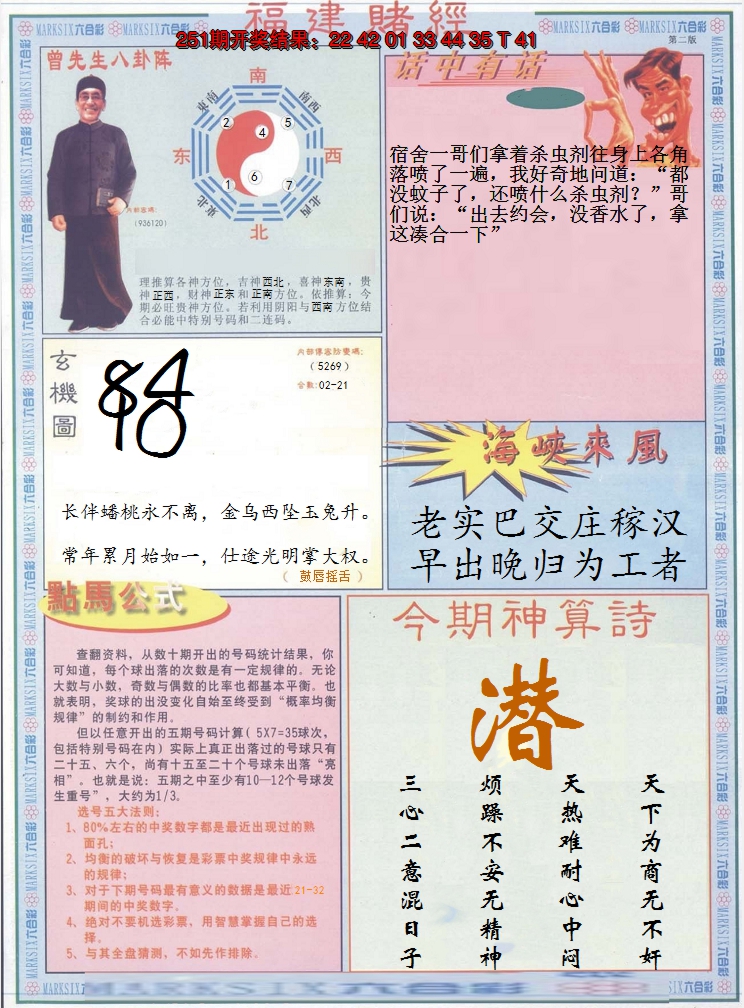 福建賭經
251期开奖结果：22 42 01 33 44 35 T 41
MARKSIX六合彩
第二版
曾先生八卦阵
南
東南
南西
2
4
5
东
西
1
6
7
東北
北西
北
內部密碼:
(936120)
理推算各神方位，吉神西北，喜神东南，贵
神正西，财神正东和正南方位。依推算：今
期必旺贵神方位。若利用阴阳与西南方位结
合必能中特别号码和二连码。
话中有话
宿舍一哥们拿着杀虫剂往身上各角
落喷了一遍，我好奇地问道：“都
没蚊子了，还喷什么杀虫剂？”哥
们说：“出去约会，没香水了，拿
这凑合一下”
玄機圖
(5269)
合數:02-21
长伴蟠桃永不离，金乌西坠玉兔升。
常年累月始如一，仕途光明掌大权。
（ 鼓唇摇舌 ）
海峡來風
老实巴交庄稼汉
早出晚归为工者
點馬公式
查翻资料，从数十期开出的号码统计结果，你
可知道，每个球出落的次数是有一定规律的。无论
大数与小数，奇数与偶数的比率也都基本平衡。也
就表明，奖球的出没变化自始至终受到“概率均衡
规律”的制约和作用。
但以任意开出的五期号码计算( 5X7=35球次，
包括特别号码在内) 实际上真正出落过的号球只有
二十五、六个，尚有十五至二十个号球未出落“亮
相”。也就是说：五期之中至少有10—12个号球发
生重号”，大约为1/3。
选号五大法则：
1、80%左右的中奖数字都是最近出现过的熟
面孔；
2、均衡的破坏与恢复是彩票中奖规律中永远
的规律；
3、对于下期号码最有意义的数据是最近21-32
期间的中奖数字。
4、绝对不要机选彩票，用智慧掌握自己的选
择。
5、与其全盘猜测，不如先作排除。
今期神算詩
潜
天下为商无不奸
天热难耐心中闷
烦躁不安无精神
三心二意混日子